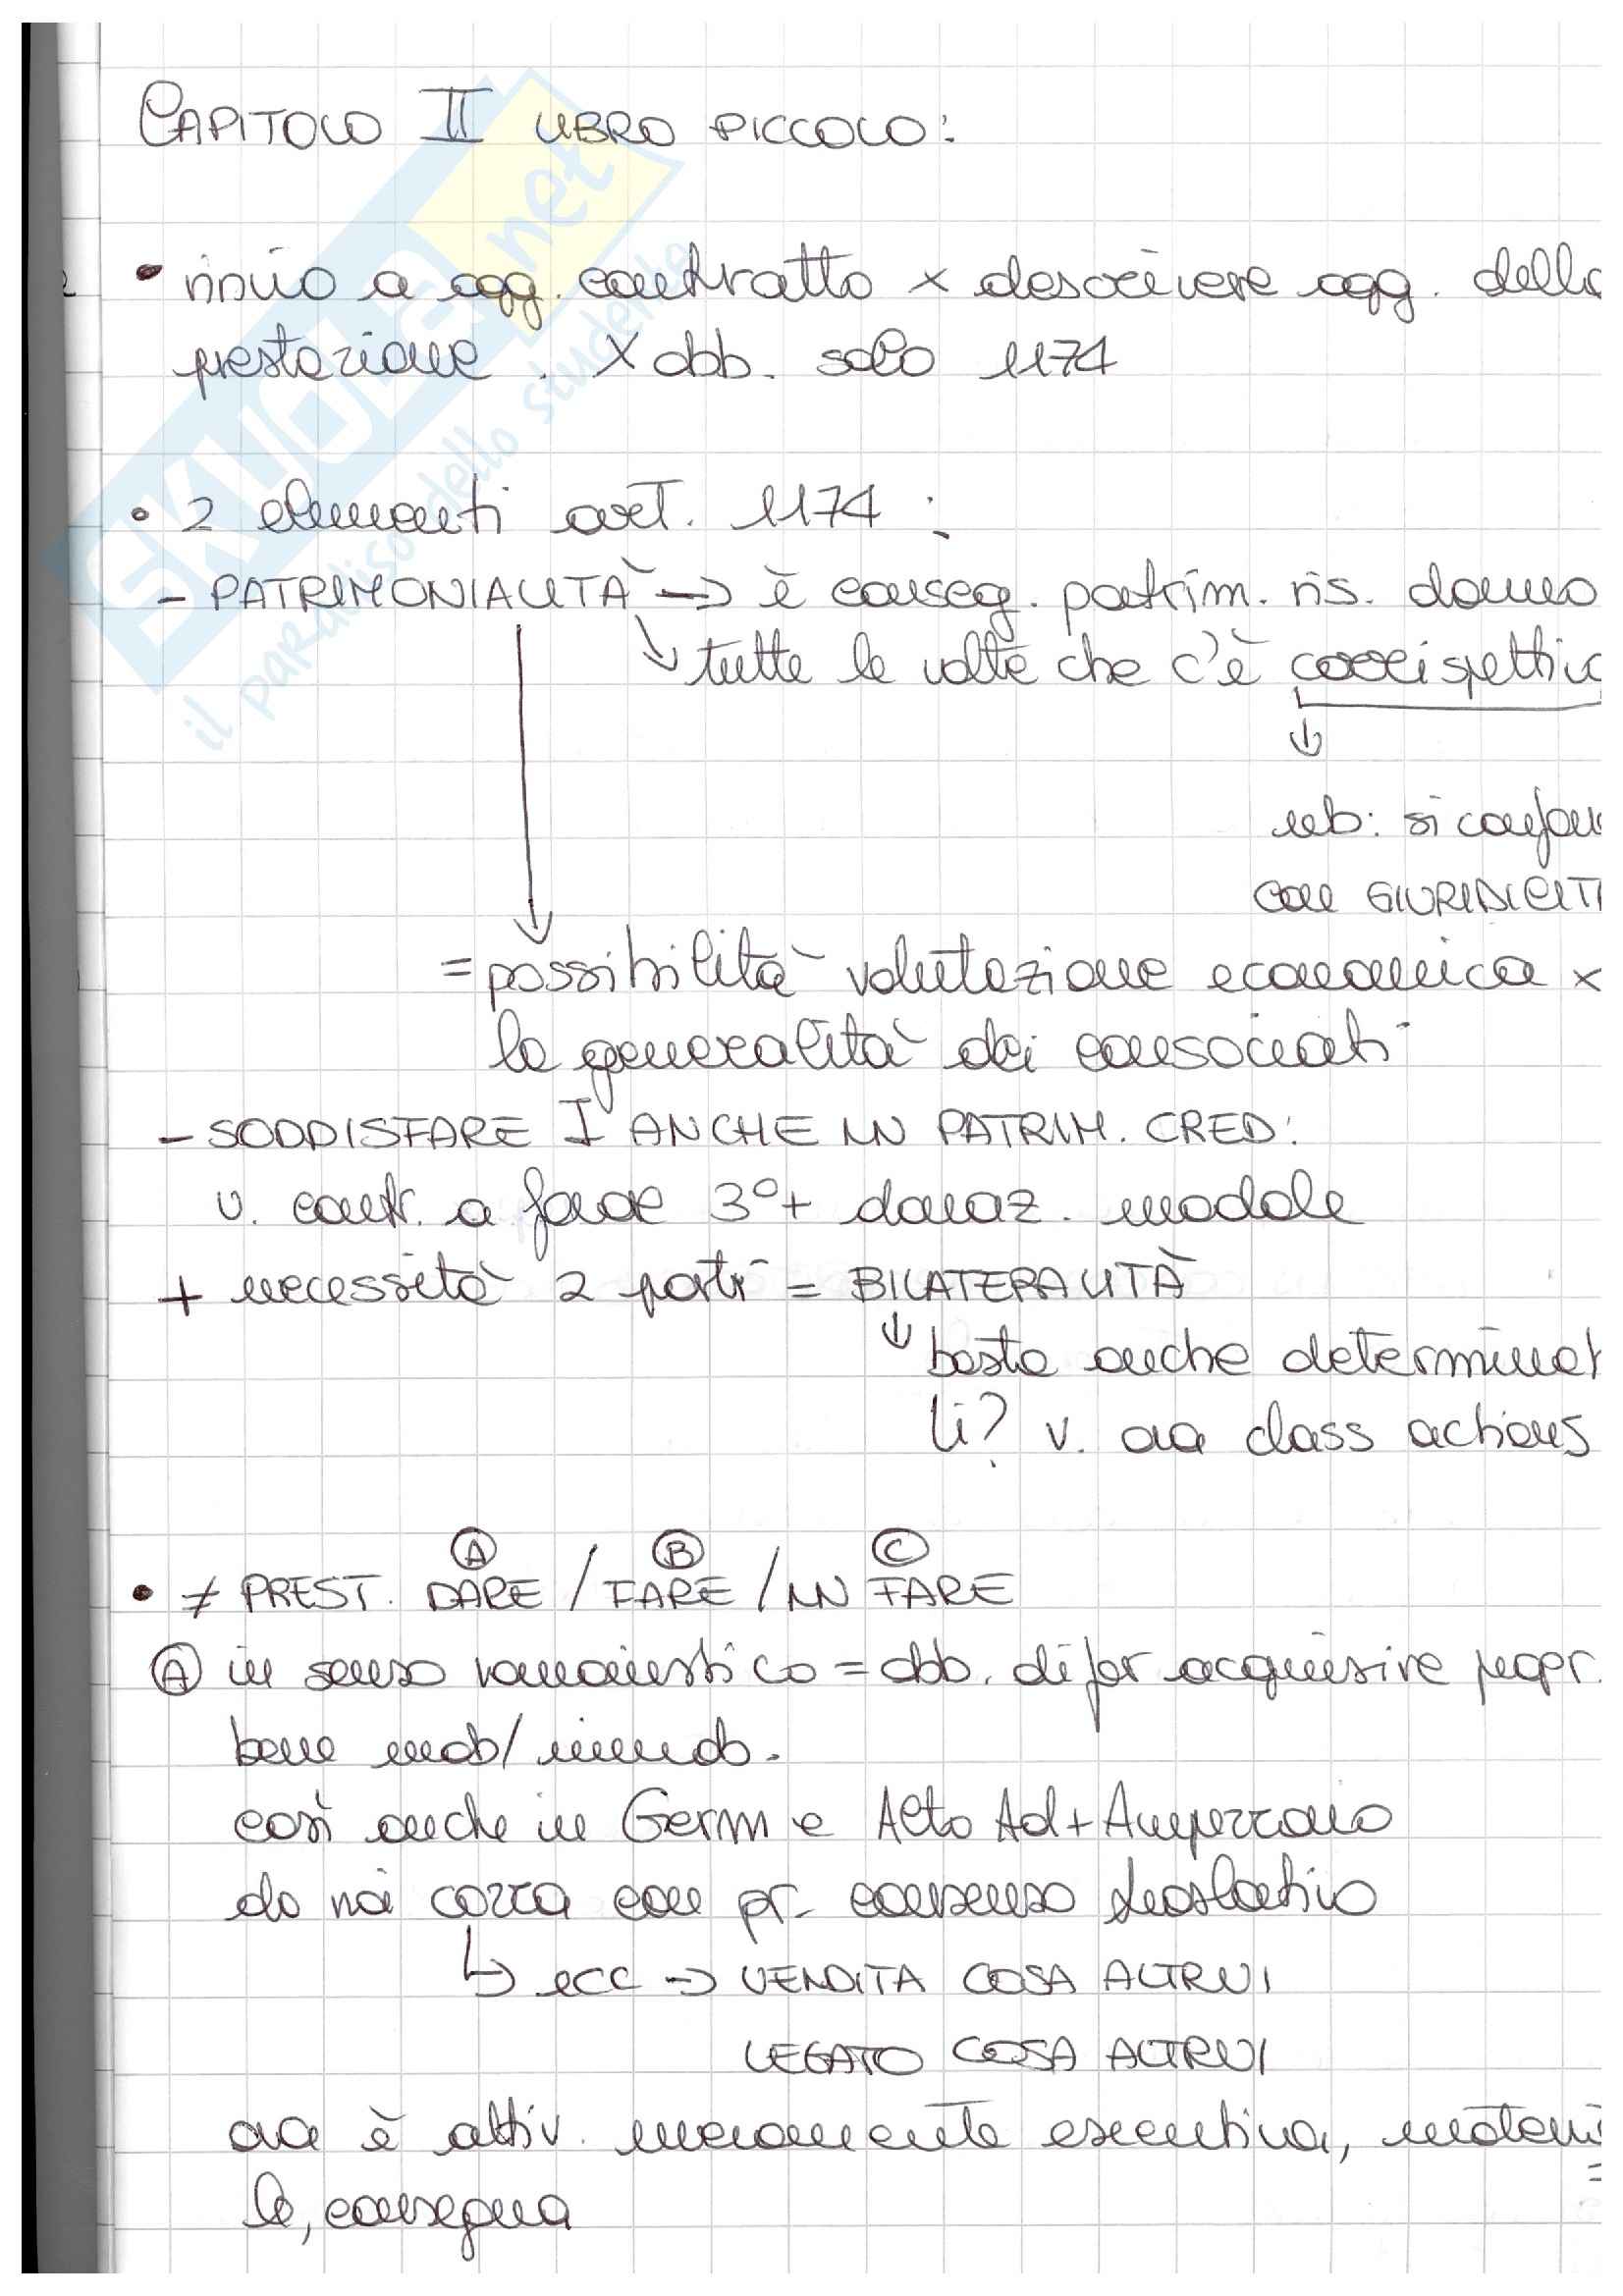 CAPITOLO II LIBRO PICCOLO:
• rinvio a ogg. contratto x descrivere ogg. della
prestazione. X obb. solo 1174
• 2 elementi art. 1174:
- PATRIMONIALITÀ → è conseg. patrim. ris. danno
↘ tutte le volte che c'è corrispettivo
↓
nb: si confon
con GIURIDICIT
= possibilità valutazione economica x
la generalità dei consociati
- SODDISFARE I ANCHE NN PATRIM. CRED:
v. contr. a favore 3° + donaz. modale
+ necessità 2 parti = BILATERALITÀ
↓ basta anche determinab
li? v. ora class actions
• ≠ PREST. DARE / FARE / NN FARE
A B C
A in senso romanistico = obb. di far acquisire propr.
bene mob/immob.
così anche in Germ e Alto Ad + Ampezzano
da noi cozza con pr. consenso traslativo
↳ ecc → VENDITA COSA ALTRUI
LEGATO COSA ALTRUI
ora è attiv. meramente esecutiva, materia
le, consegna
SKUOLA.net
il paradiso dello studente